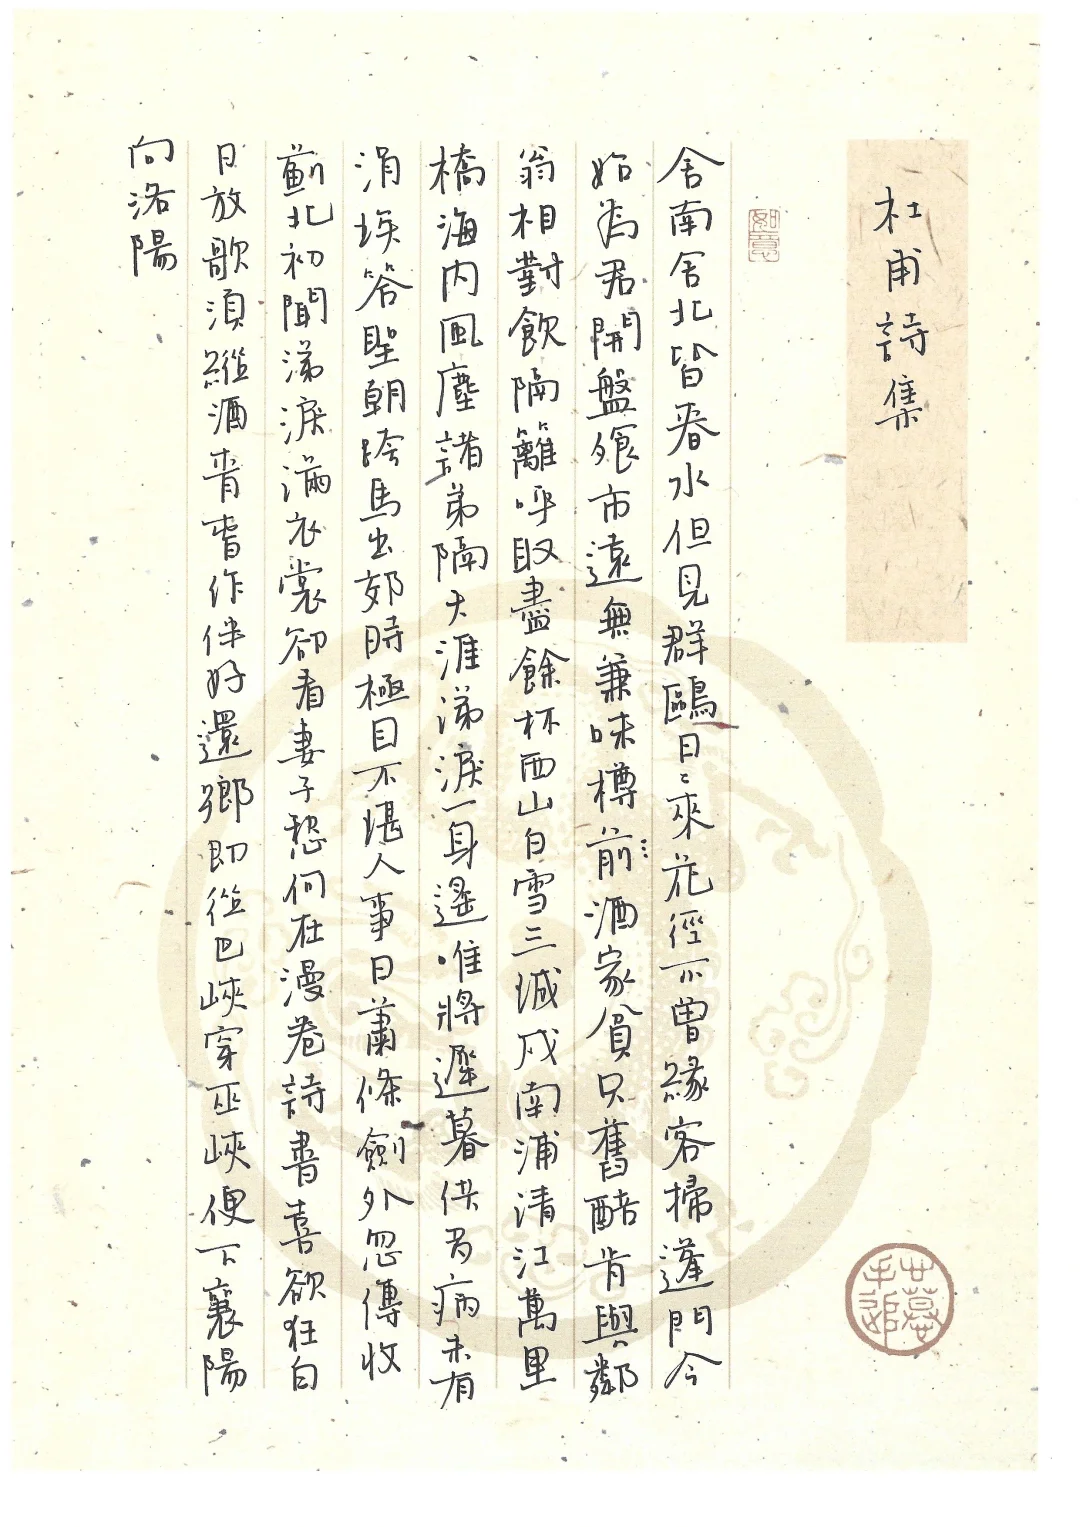 杜甫詩集
如意
舍南舍北皆春水但見群鷗日々來花徑不曾緣客掃蓬門今
始為君開盤飱市遠無兼味樽前酒家貧只舊醅肯與鄰
翁相對飲隔籬呼取盡餘杯西山白雪三城戍南浦清江萬里
橋海內風塵諸弟隔天涯涕淚一身遙唯將遲暮供多病未有
涓埃答聖朝跨馬出郊時極目不堪人事日蕭條劍外忽傳收
薊北初聞涕淚滿衣裳卻看妻子愁何在漫卷詩書喜欲狂白
日放歌須縱酒青春作伴好還鄉即從巴峽穿巫峽便下襄陽
向洛陽